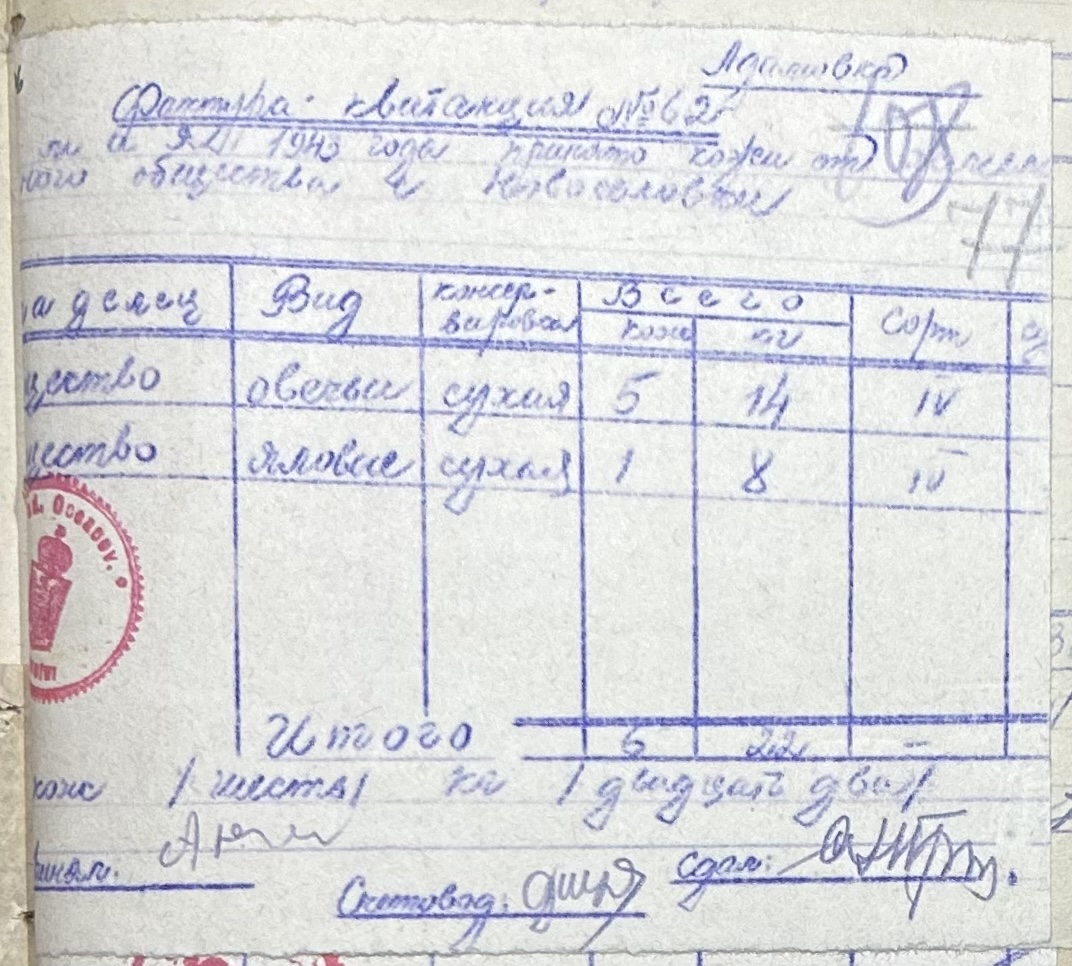 Адамовка
Фактура - квитанция № 62
108
1943 годы принято кожи от
ного общества с Новоселовки
77
делец Вид консер-
вировка Всего
кож кг Сорт
щество овечьи сухая 5 14 IV
щество яловые сухая 1 8 IV
Оселсву.
Итого 6 22 -
кож /шесть/ кг /двадцать два/
Принял:
Сдал:
Счетовод: